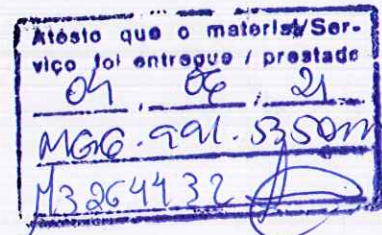 Atesto que o material/Ser-
viço foi entregue / prestado
04 , 06 , 21
M3264432